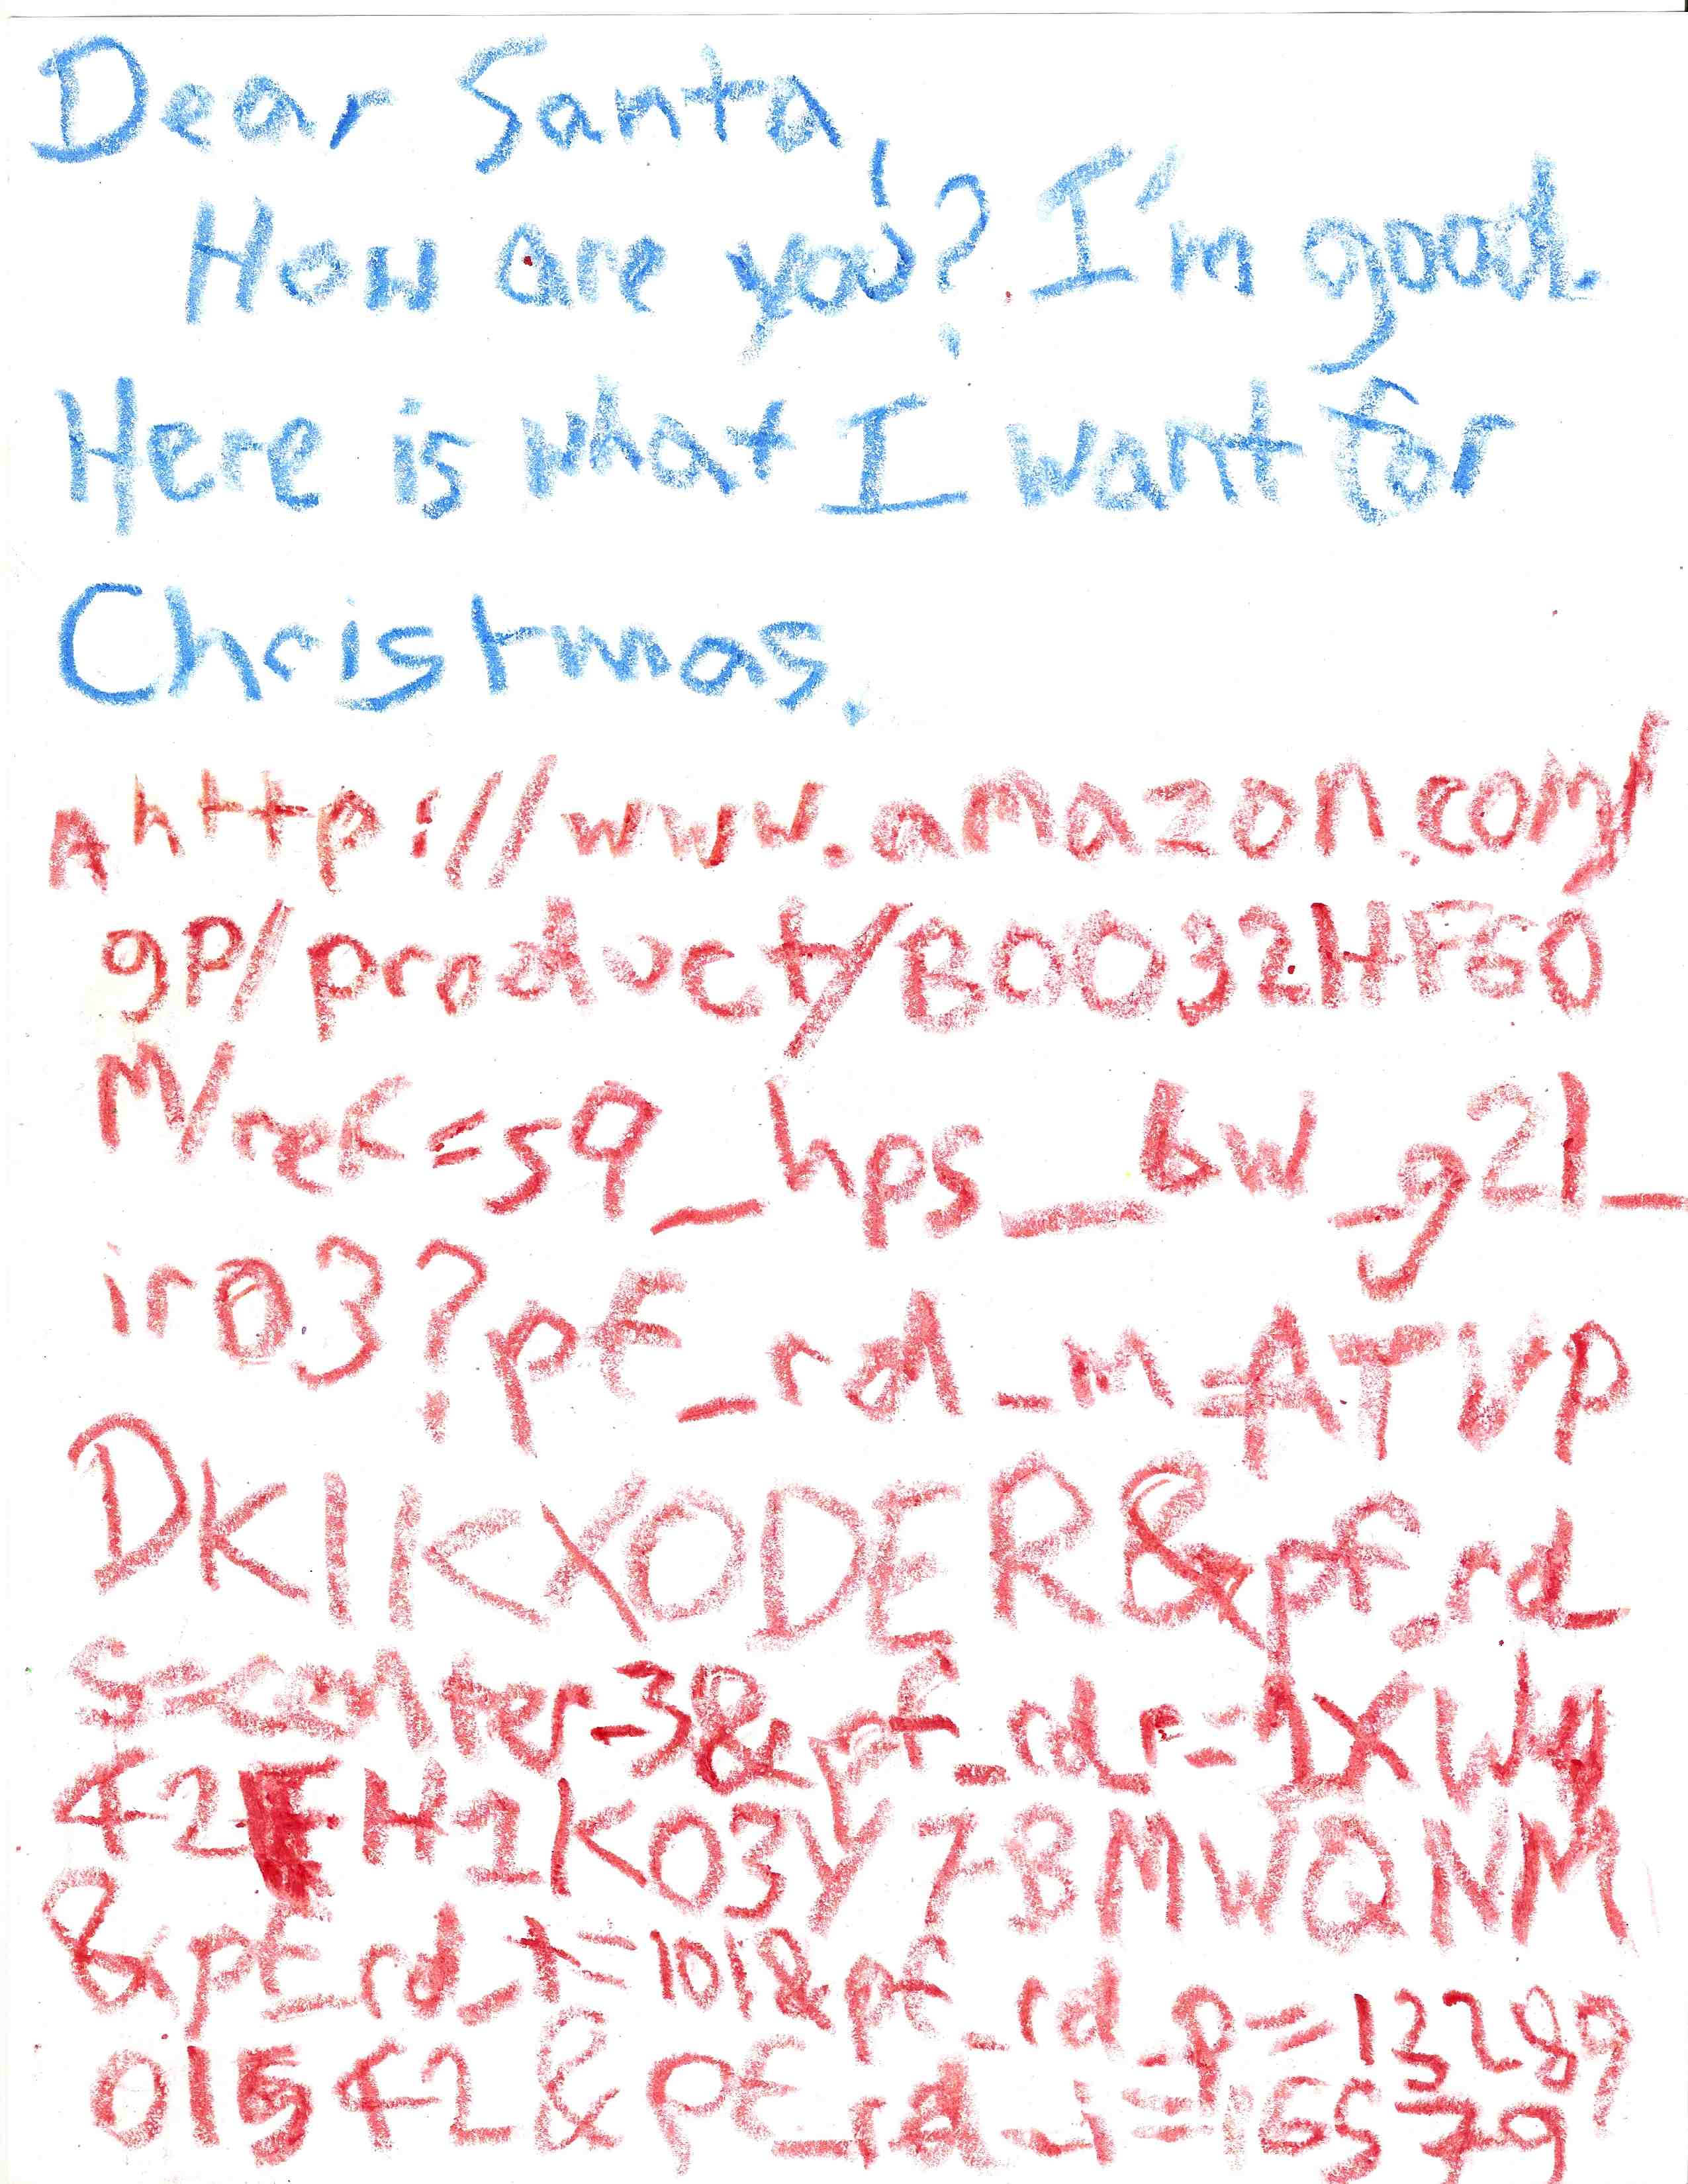 Dear Santa,
How are you? I'm good.
Here is what I want for
Christmas.
A http://www.amazon.com/
gp/product/B0032HFG0
M/ref=s9_hps_bw_g21_
ir03?pf_rd_m=ATVP
DKIKX0DER&pf_rd_
s=center-3&pf_rd_r=1XW4
42FH1K03Y7BMWQNM
&pf_rd_t=101&pf_rd_p=13289
01542&pf_rd_i=165579